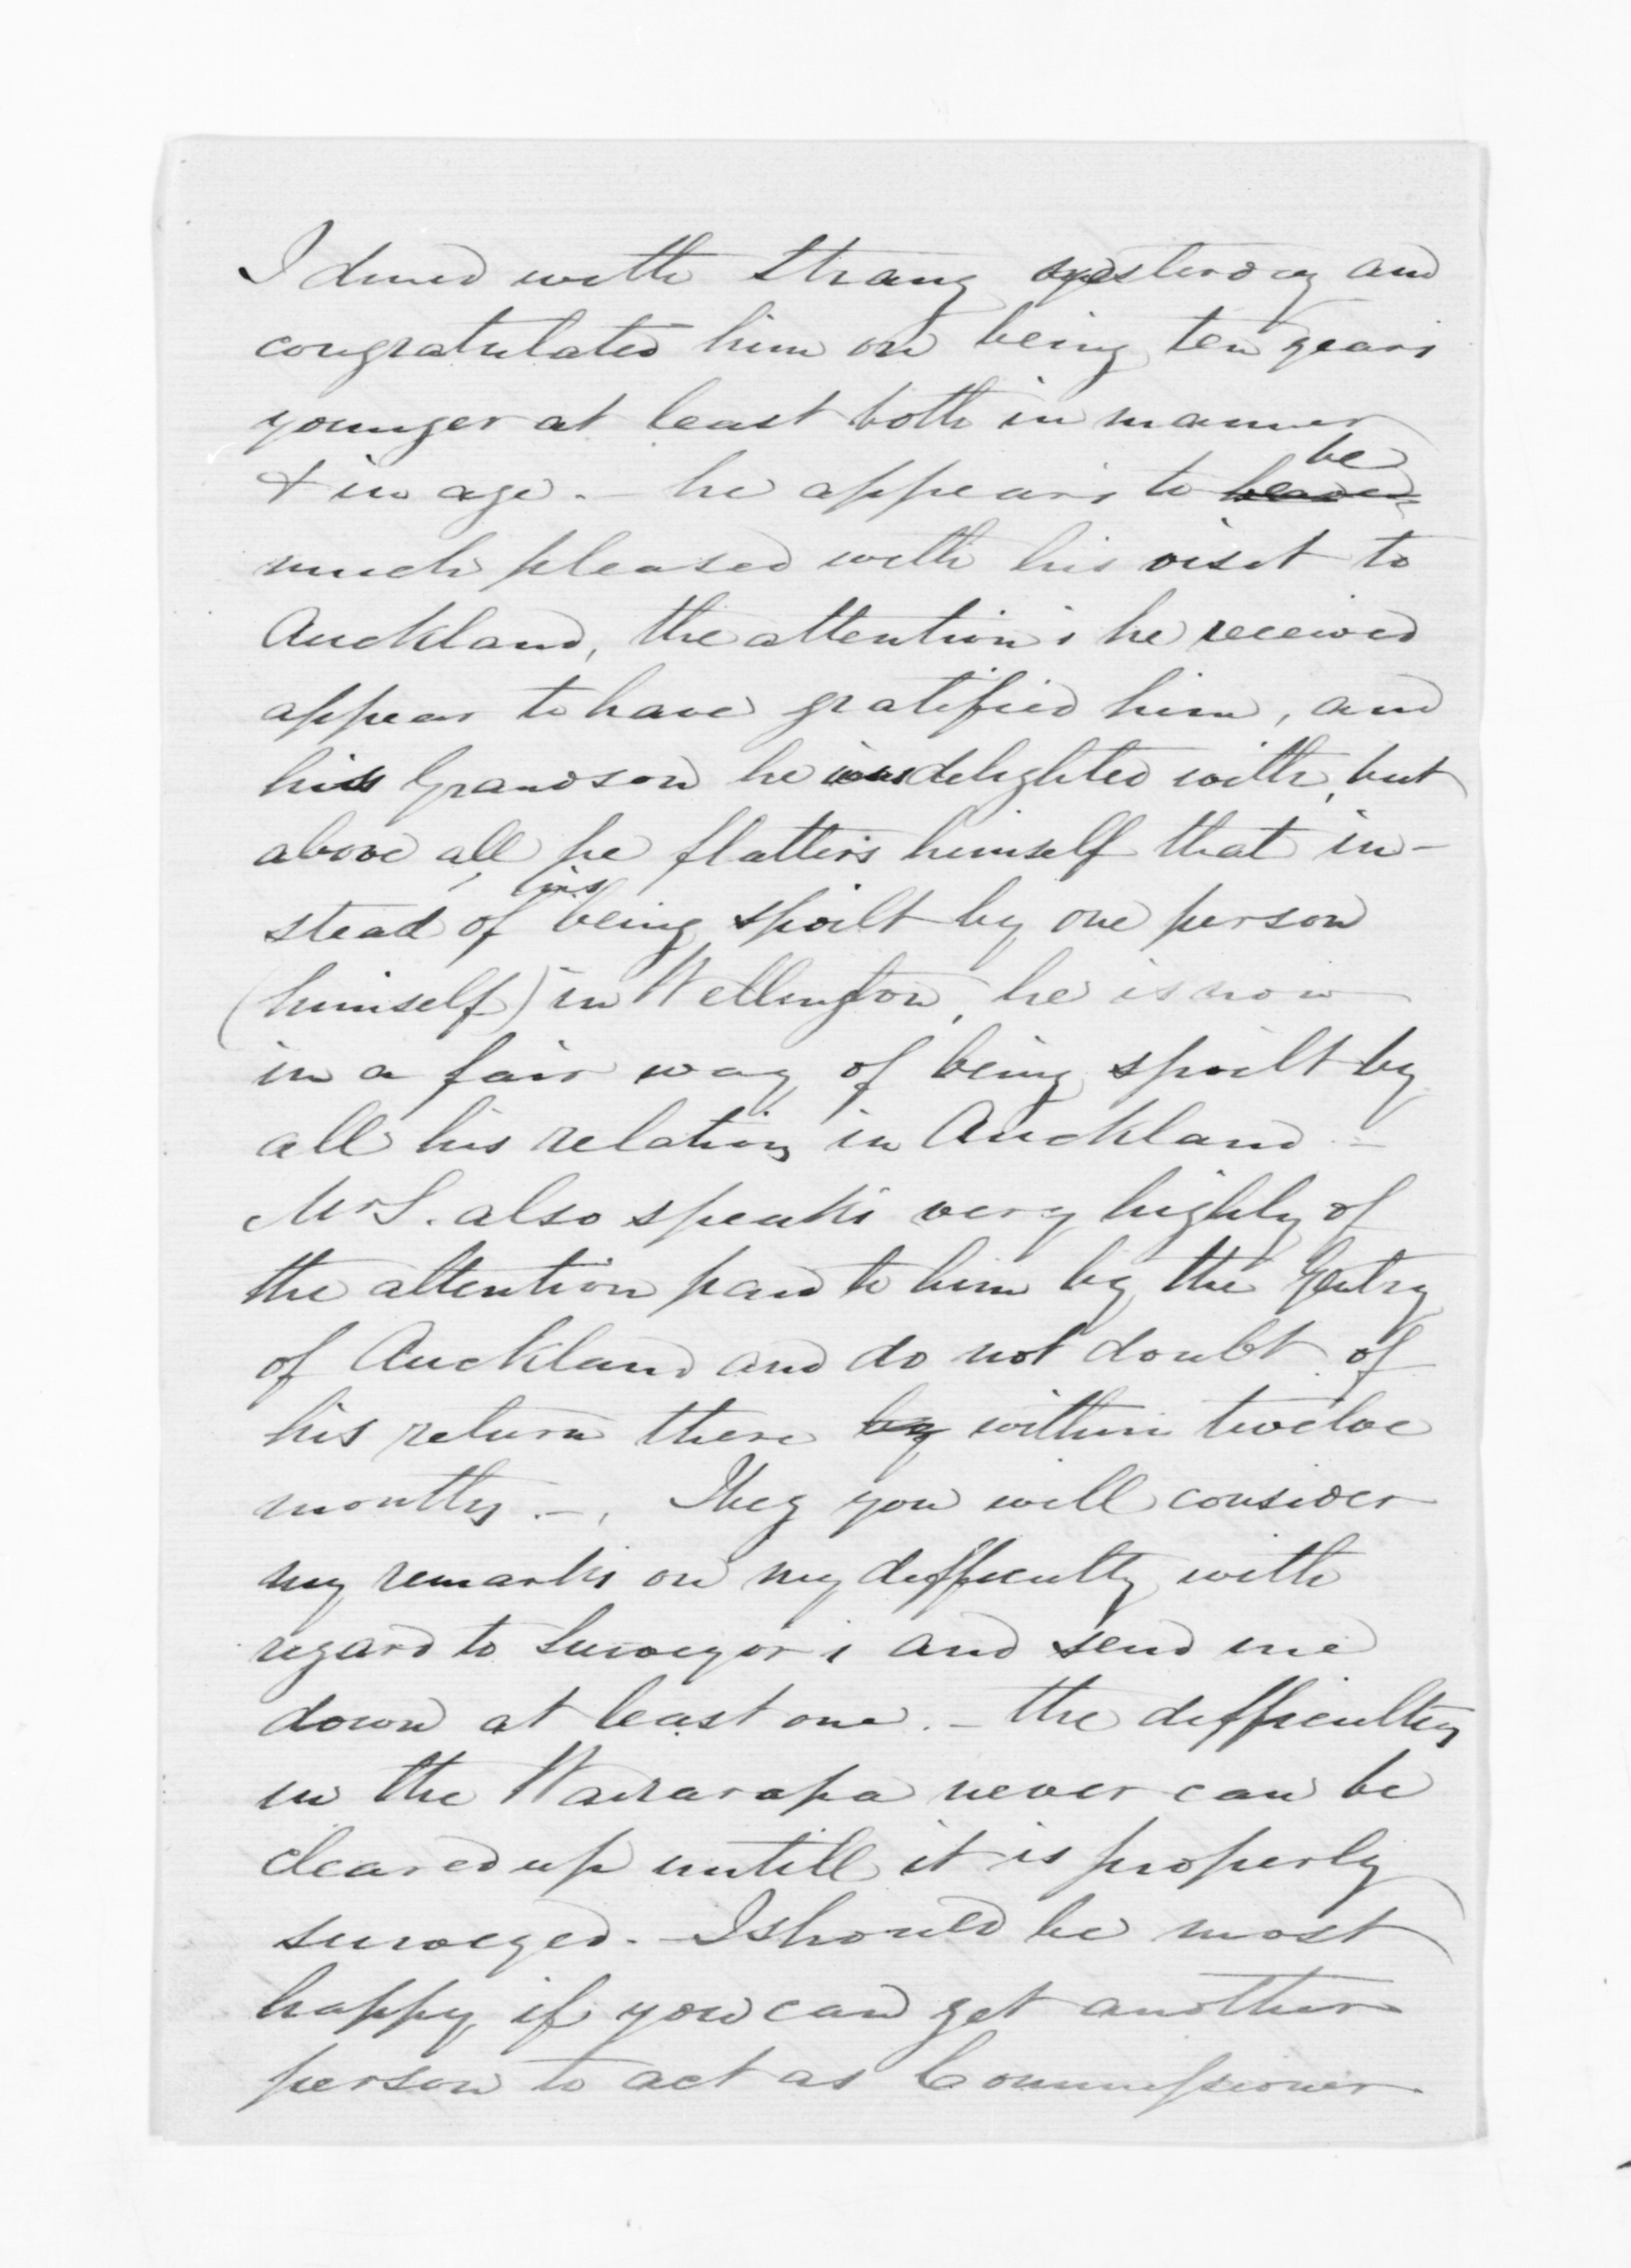 I dined with Strang yesterday and
congratulated him on being ten years
younger at least both in manner
& in age. - he appears to be
much pleased with his visit to
Auckland, the attentions he received
appear to have gratified him, and
his Grandson he was delighted with, but
above all he flatters himself that in-
stead of his being spoilt by one person
(himself) in Wellington, he is now
in a fair way of being spoilt by
all his relations in Auckland -
Mr S. also speaks very highly of
the attention paid to him by the Gentry
of Auckland and do not doubt of
his return there by within twelve
months. -, I beg you will consider
my remarks on my difficulty with
regard to Surveyors and send me
down at least one. - the difficulties
in the Wairarapa never can be
cleared up untill it is properly
surveyed. - I should be most
happy if you can get another
person to act as Commissioner.